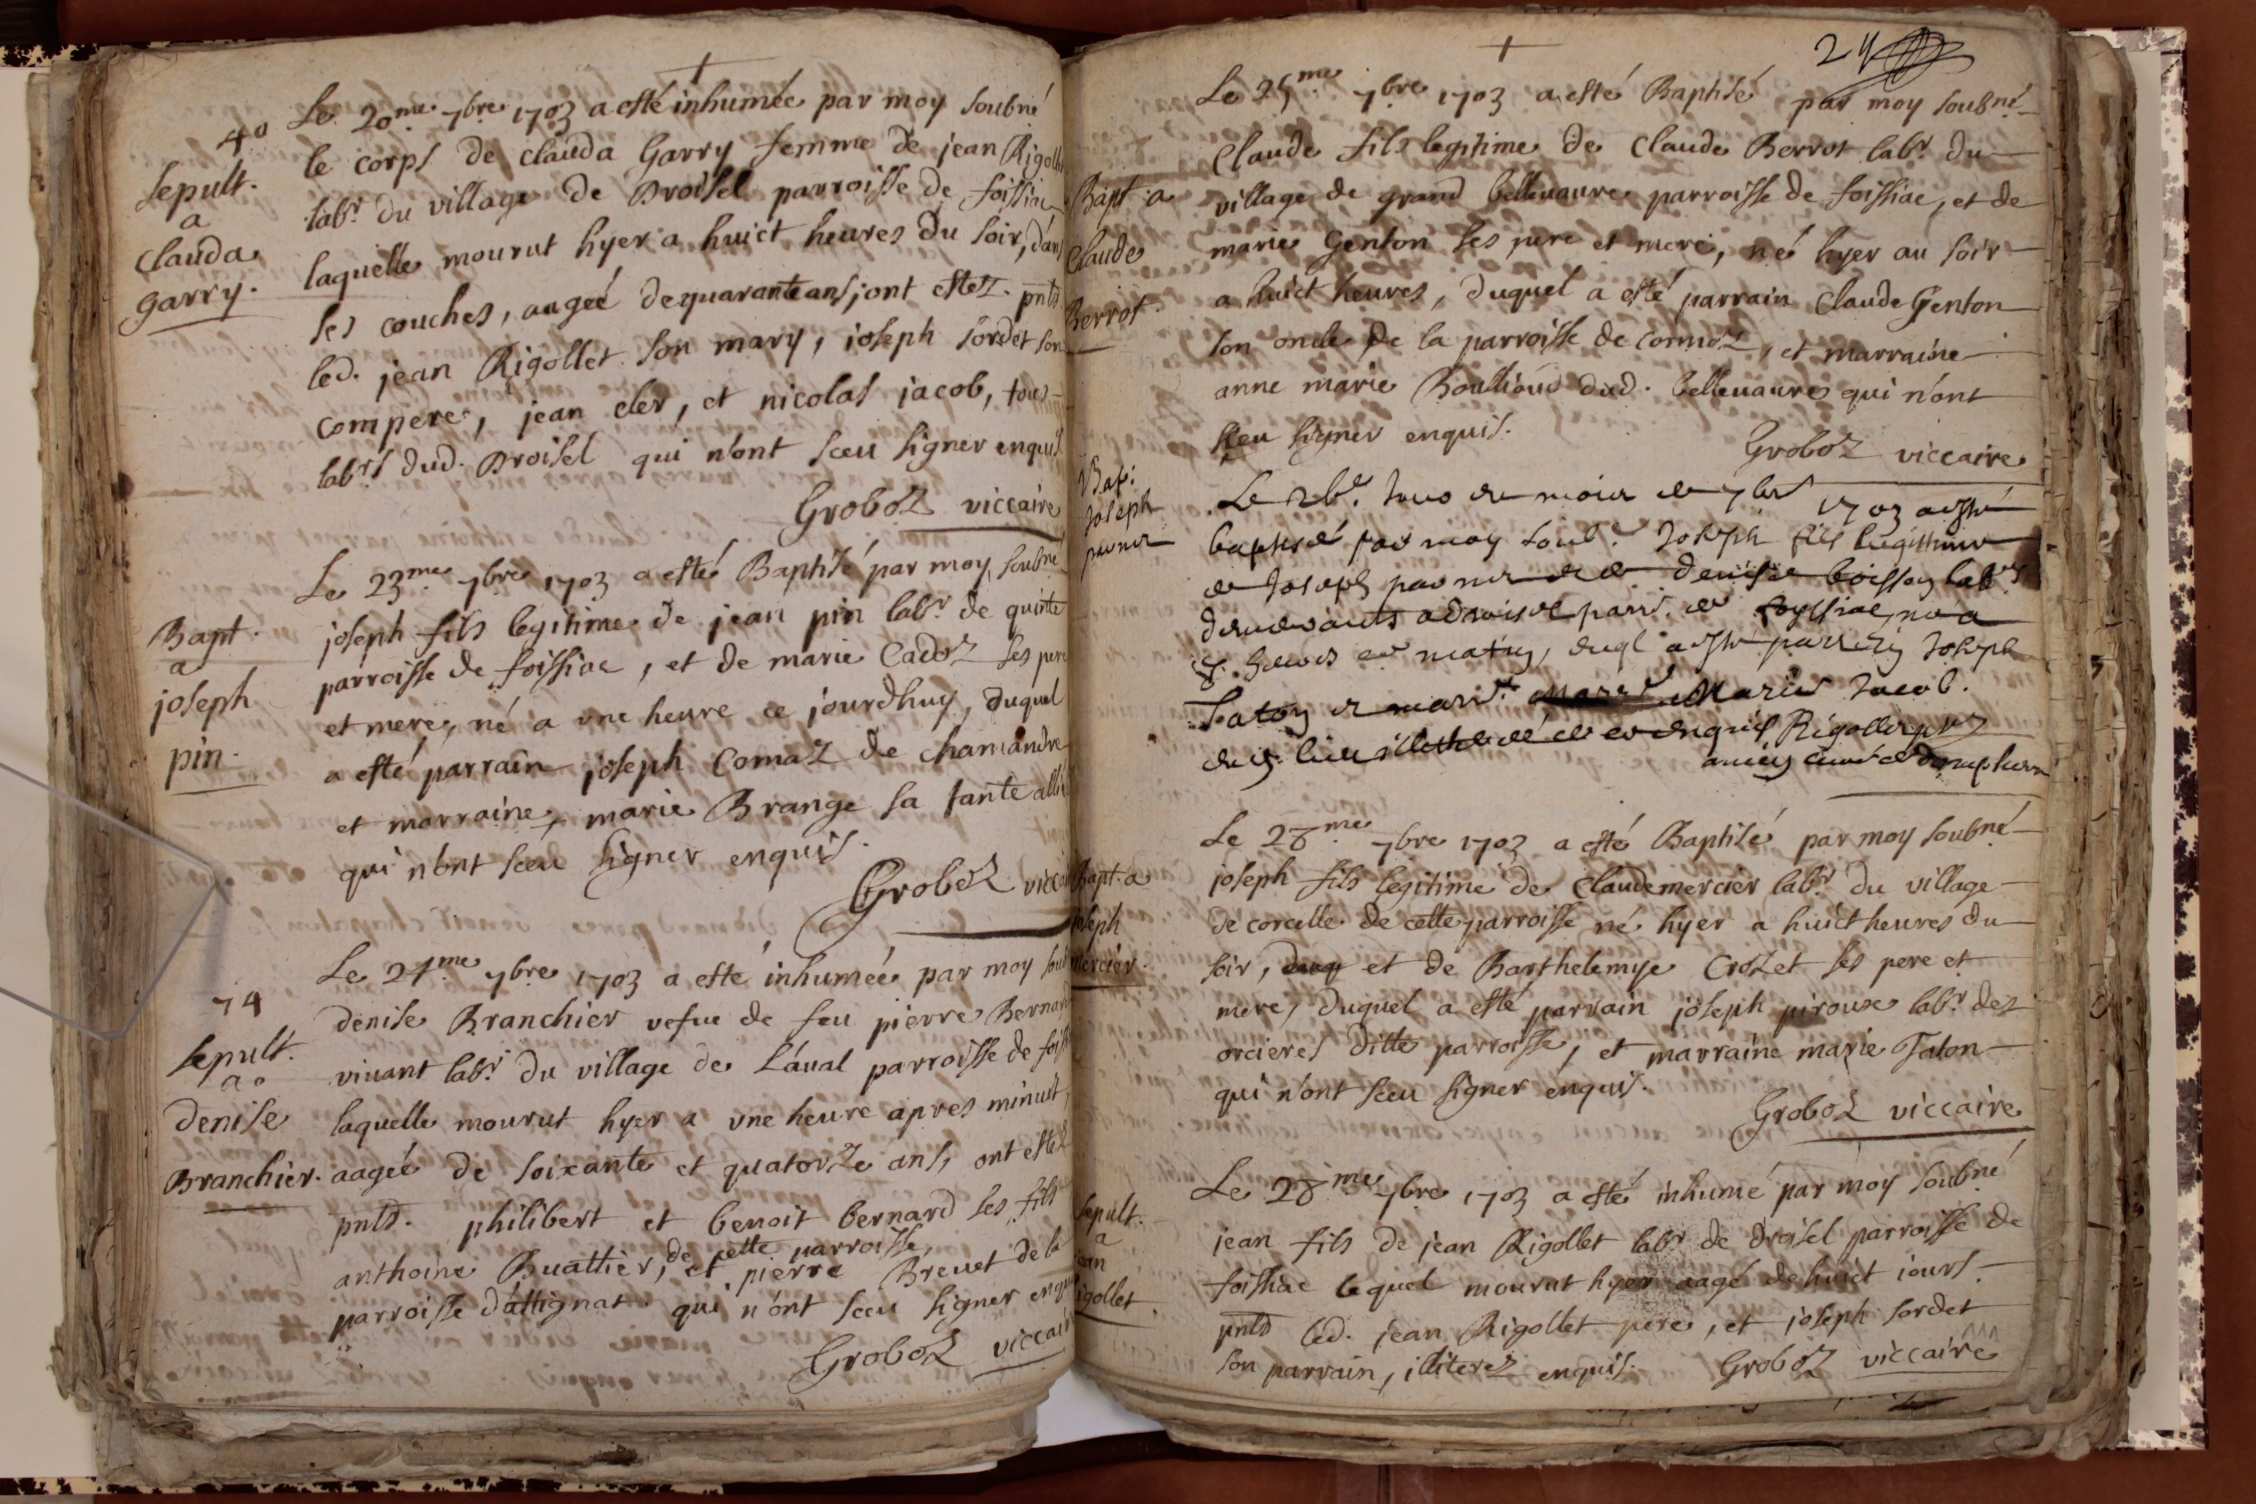 +
40
Sepult.
a
Clauda
garry.
Le 20me 7bre 1703 a esté inhumée par moy soubné
le corps de clauda Garry femme de jean Rigollet
labr. du village de Droisel parroisse de foissiac
laquelle mourut hyer a huict heures du soir, dans
ses couches, augée de quarante ans, ont estez pnts
led. jean Rigollet son mary, joseph sordet son
compere, jean cler, et nicolas jacob, tous
labrs dud. Droisel qui n'ont sceu signer enquis
Groboz viccaire
Bapt.
a
joseph
pin.
Le 23me 7bre 1703 a esté Baptisé par moy soubné
joseph fils legitime de jean pin labr. de quinte
parroisse de foissiac, et de marie Cadoz ses pere
et mere, né a vne heure ce jourdhuy, duquel
a esté parrain joseph Comaz de chamandre
et marraine, marie Brange sa tante
qui n'ont sceu signer enquis.
Groboz viccai
74
Sepult.
a
Denise
Branchier.
Le 24me 7bre 1703 a esté inhumée par moy soub
denise Branchier vefue de feu pierre Bernard
viuant labr. du village de Laual parroisse de foiss
laquelle mourut hyer a vne heure apres minuit,
aagée de soixante et quatorze ans, ont estez
pnts. philibert et benoit bernard ses fils
de cette parroisse,
anthoine Buattier, et pierre Breuet de la
parroisse d'attignat. qui n'ont sceu signer enqu
Groboz viccair
+
24
Bapt. a
Claude
Berrot.
Le 25me. 7bre 1703 a esté Baptisé par moy soubné
Claude fils legitime de Claude Berrot labr. du
village de grand belleuaure parroisse de foissiac, et de
marie Genton ses pere et mere, né hyer au soir
a huict heures, duquel a esté parrain Claude Genton
son oncle de la parroisse de cormoz, et marraine
anne marie Boullioud dud. belleuaure qui n'ont
sceu signer enquis.
Groboz viccaire
Bap:
Joseph
Le Jour du mois de 7bre 1703 a esté
baptisé par moy soub. Joseph fils legittime
de Joseph et de denise boisson labrs
a droisel parr. de foyssiac, né a
heures du matin, duql a esté parrain Joseph
Taton et marr. Marie Jacob.
dud. lieu enquis Rigollet
ancien curé de
Bapt. a
joseph
mercier.
Le 28me. 7bre 1703 a esté Baptisé par moy soubné
joseph fils legitime de Claude mercier labr. du village
de corcelle de cette parroisse né hyer a huict heures du
soir, et de Barthelemye Crozet ses pere et
mere, duquel a esté parrain joseph pirouse labr. des
orcieres ditte parroisse, et marraine marie Taton
qui n'ont sceu signer enquis.
Groboz viccaire
Sepult.
a
ean
igollet.
Le 28me 7bre 1703 a esté inhumé par moy soubné
jean fils de jean Rigollet labr. de droisel parroisse de
foissiac lequel mourut hyer aagé de huict iours.
pnts led. jean Rigollet pere, et joseph sordet
son parrain, illiterez enquis. Groboz viccaire